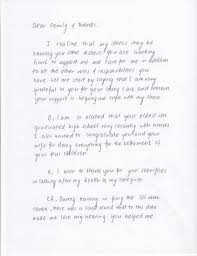 Dear Family & Friends,
I realize that my illness may be
causing you some distress. You are working
hard to support me and care for me in addition
to all the other roles & responsibilities you
have. Let me start by saying that I am very
grateful to you for your loving care and concern
your support is helping me cope with my illness.
C, I am so elated that your eldest son
graduated high school very recently with honors.
I also wanted to congratulate you and your
wife for doing everything for the betterment of
your four children.
V, I want to thank you for your sacrifices
in looking after my health as my caregiver.
CA, During training in fixing the 105 mm
there was a loud sound that to this date
made me lose my hearing. You helped me